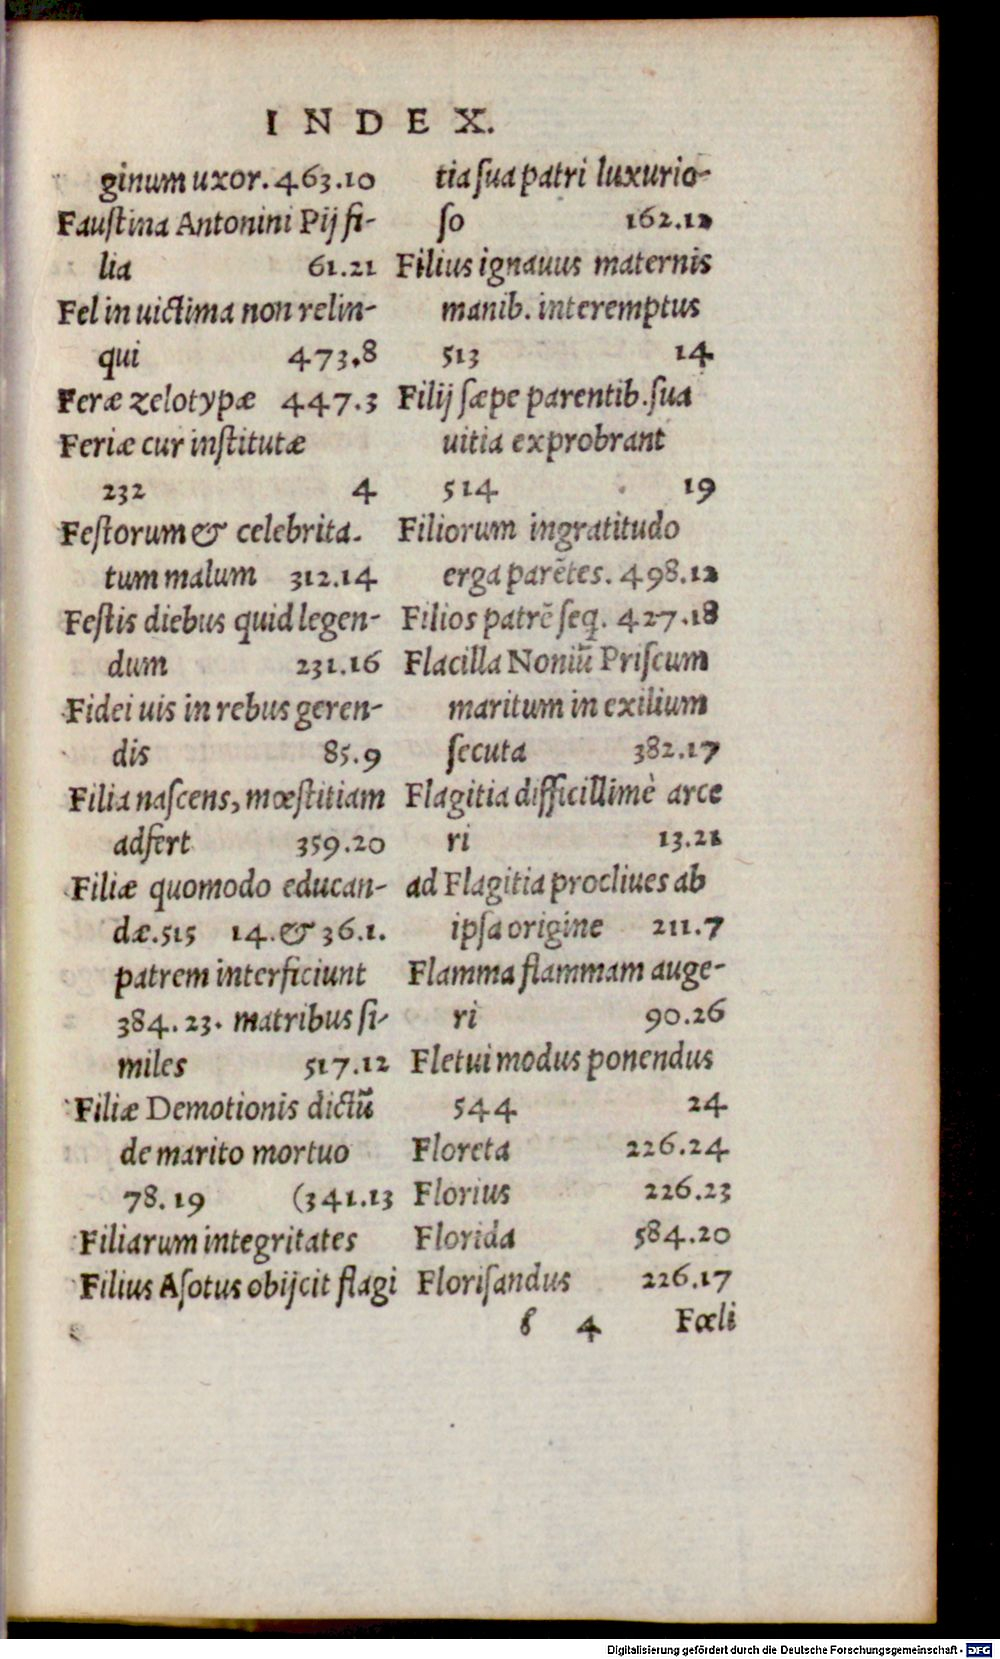 INDEX.
ginum uxor. 463.10
Faustina Antonini Pij fi-
lia 61.21
Fel in uictima non relin-
qui 473.8
Feræ zelotypæ 447.3
Feriæ cur institutæ
232 4
Festorum & celebrita-
tum malum 312.14
Festis diebus quid legen-
dum 231.16
Fidei uis in rebus geren-
dis 85.9
Filia nascens, mœstitiam
adfert 359.20
Filiæ quomodo educan-
dæ. 515 14. & 36.1.
patrem interficiunt
384. 23. matribus si-
miles 517.12
Filiæ Demotionis dictũ
de marito mortuo
78. 19 (341.13
Filiarum integritates
Filius Asotus obijcit flagi
tia sua patri luxurio-
so 162.12
Filius ignauus maternis
manib. interemptus
513 14
Filij sæpe parentib. sua
uitia exprobrant
514 19
Filiorum ingratitudo
erga parẽtes. 498.12
Filios patrẽ seq. 427.18
Flacilla Noniũ Priscum
maritum in exilium
secuta 382.17
Flagitia difficillimè arce
ri 13.21
ad Flagitia procliues ab
ipsa origine 211.7
Flamma flammam auge-
ri 90.26
Fletui modus ponendus
544 24
Floreta 226.24
Florius 226.23
Florida 584.20
Florisandus 226.17
4 Fœli
Digitalisierung gefördert durch die Deutsche Forschungsgemeinschaft - DFG